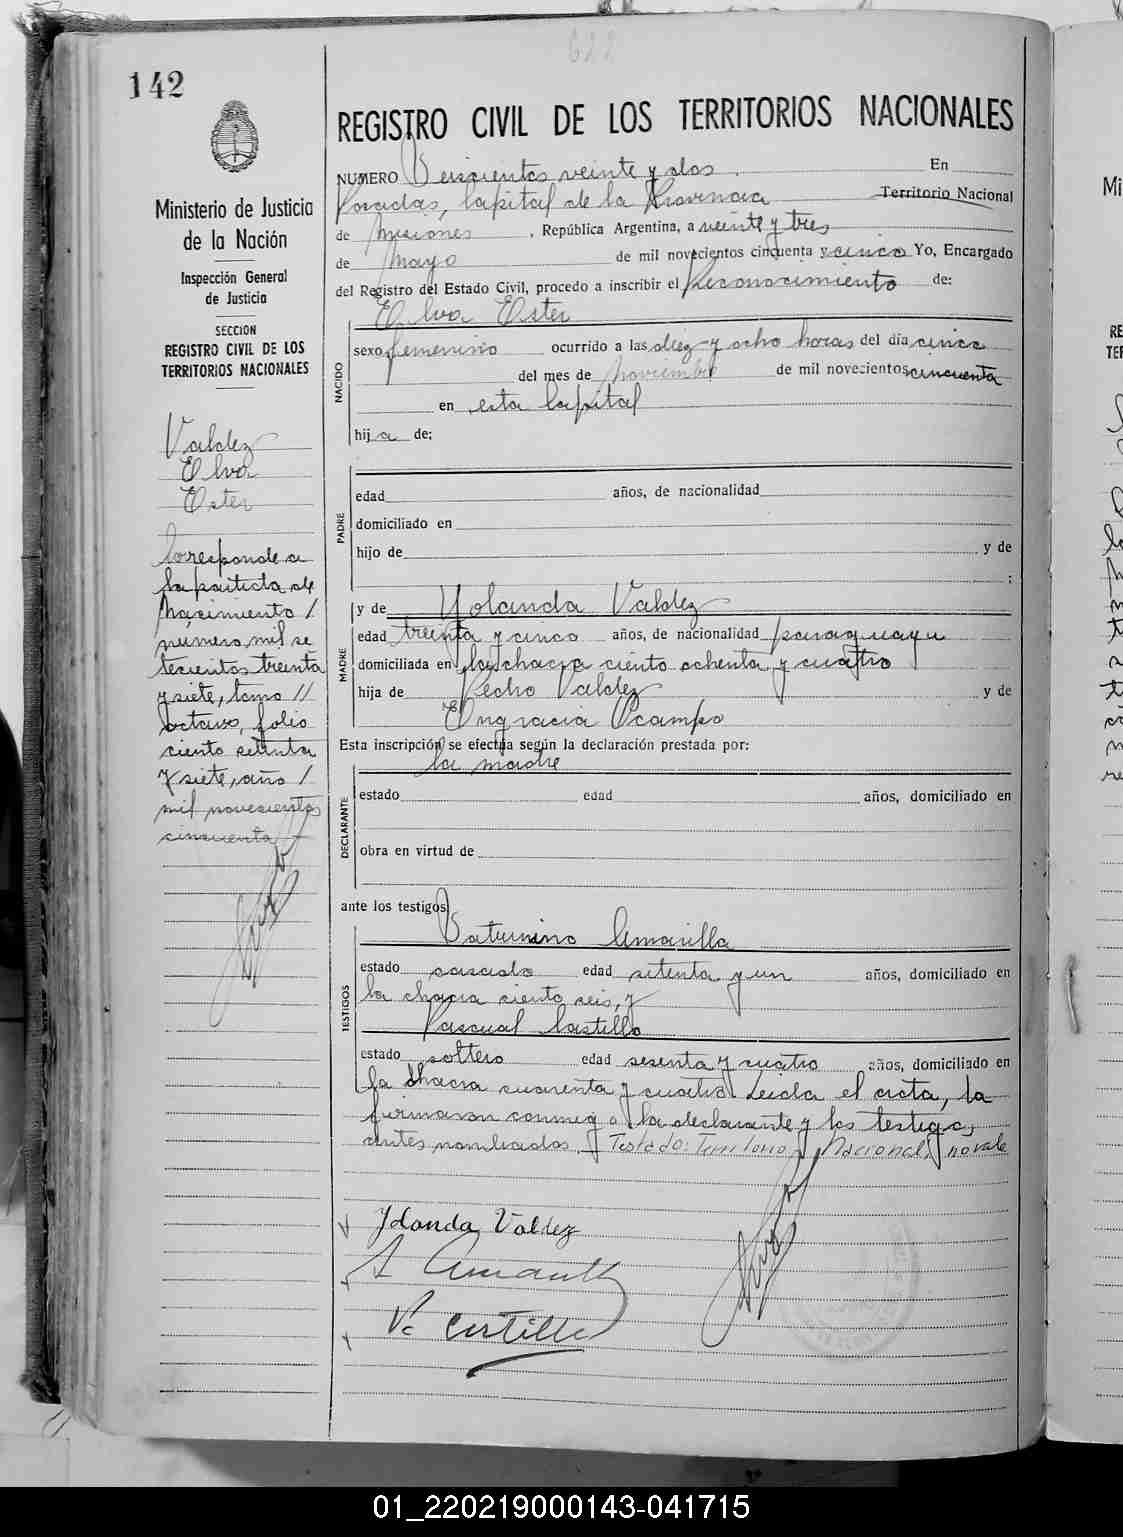 622
142
Ministerio de Justicia
de la Nación
Inspección General
de Justicia
SECCION
REGISTRO CIVIL DE LOS
TERRITORIOS NACIONALES
Valdez
Elva
Ester
Corresponde a
la partida de
Nacimiento /
numero mil se
tecientos treinta
y siete, tomo //
octavo, folio
ciento setenta
y siete, año /
mil novecientos
cincuenta
REGISTRO CIVIL DE LOS TERRITORIOS NACIONALES
NUMERO Seiscientos veinte y dos. En
Posadas, Capital de la Provincia Territorio Nacional
de Misiones, República Argentina, a veinte y tres
de Mayo de mil novecientos cincuenta y cinco Yo, Encargado
del Registro del Estado Civil, procedo a inscribir el Reconocimiento de:
Elva Ester
NACIDO
sexo femenino ocurrido a las diez y ocho horas del día cinco
del mes de Noviembre de mil novecientos cincuenta
en esta Capital
hija de:
PADRE
edad años, de nacionalidad
domiciliado en
hijo de y de
;
MADRE
y de Yolanda Valdez
edad treinta y cinco años, de nacionalidad paraguaya
domiciliada en la chacra ciento ochenta y cuatro
hija de Pedro Valdez y de
Engracia Ocampo
Esta inscripción se efectúa según la declaración prestada por:
la madre
DECLARANTE
estado edad años, domiciliado en
obra en virtud de
ante los testigos
TESTIGOS
Saturnino Amarilla
estado casado edad setenta y un años, domiciliado en
la chacra ciento seis, y
Pascual Castillo
estado soltero edad sesenta y cuatro años, domiciliado en
la chacra cuarenta y cuatro. Leida el acta, la
firmaron conmigo la declarante y los testigos
antes nombrados. Testado: Territorio Nacional, no vale
Yolanda Valdez
S Amarilla
P. Castillo
01_220219000143-041715